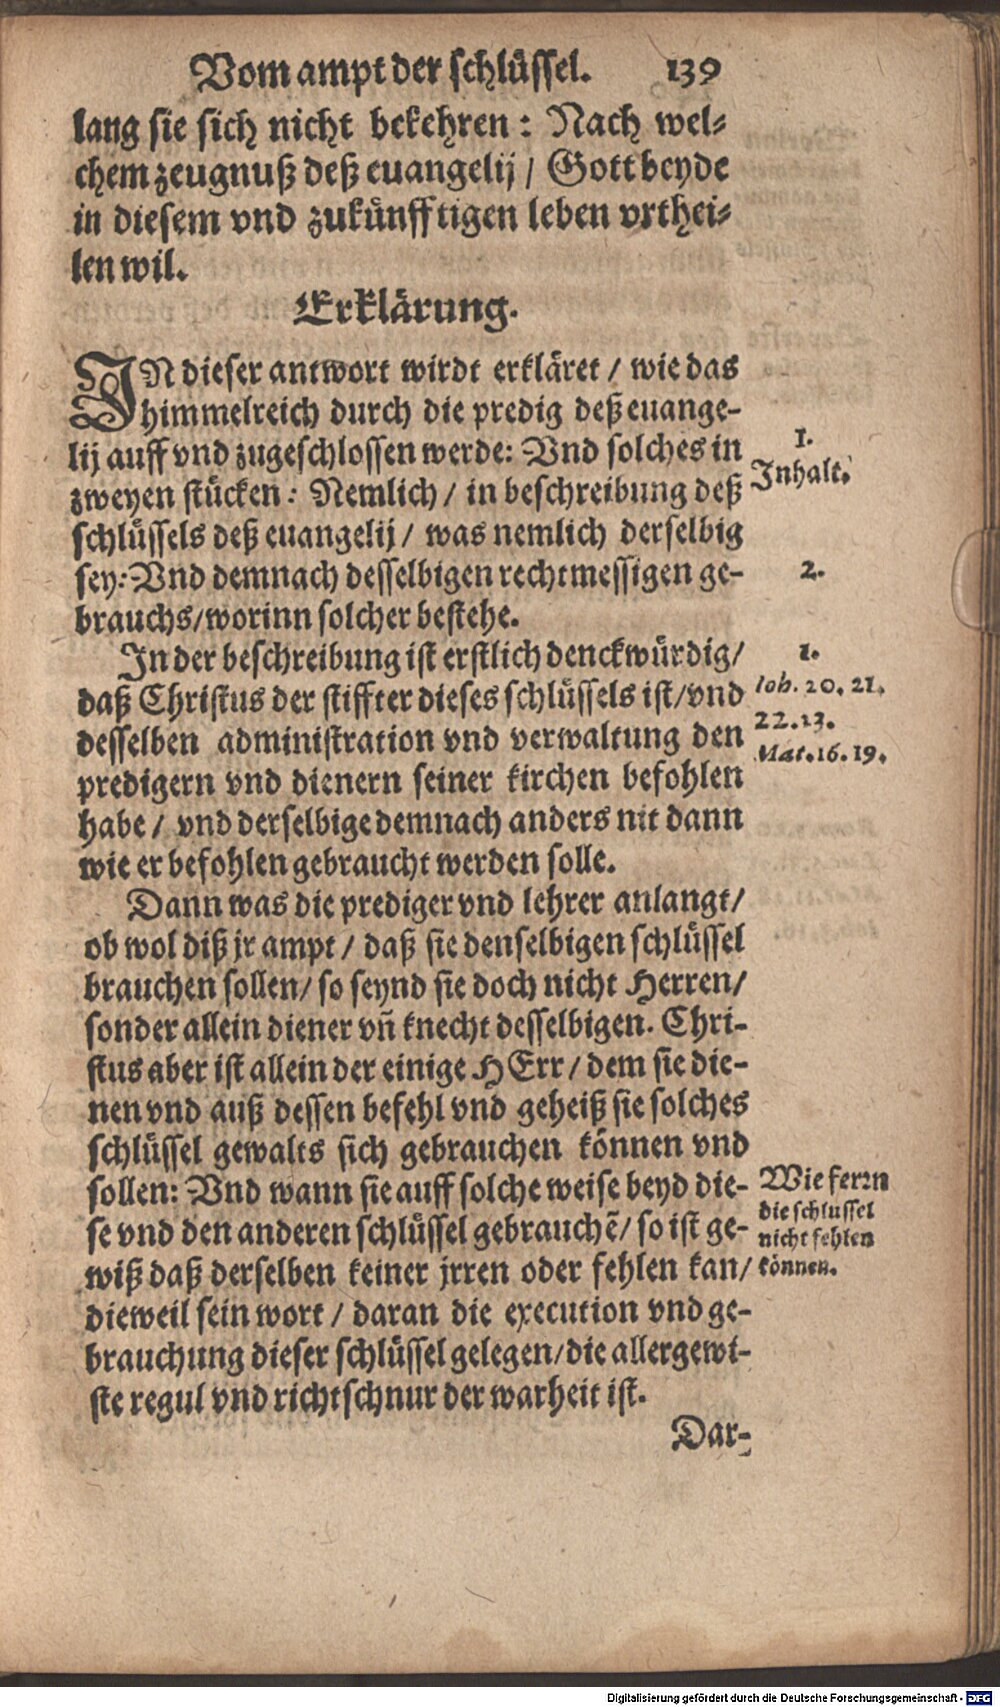 Vom ampt der schlüssel. 139
lang sie sich nicht bekehren: Nach wel-
chem zeugnuß deß euangelij / Gott beyde
in diesem vnd zukünfftigen leben vrthei-
len wil.
Erklärung.
IN dieser antwort wirdt erkläret / wie das
himmelreich durch die predig deß euange-
lij auff vnd zugeschlossen werde: Vnd solches in
1.
Inhalt.
zweyen stücken: Nemlich / in beschreibung deß
schlüssels deß euangelij / was nemlich derselbig
sey: Vnd demnach desselbigen rechtmessigen ge-
2.
brauchs / worinn solcher bestehe.
In der beschreibung ist erstlich denckwürdig /
1.
daß Christus der stiffter dieses schlüssels ist / vnd
Ioh. 20. 21.
22. 23.
desselben administration vnd verwaltung den
Mat. 16. 19.
predigern vnd dienern seiner kirchen befohlen
habe / vnd derselbige demnach anders nit dann
wie er befohlen gebraucht werden solle.
Dann was die prediger vnd lehrer anlangt /
ob wol diß jr ampt / daß sie denselbigen schlüssel
brauchen sollen / so seynd sie doch nicht Herren /
sonder allein diener vñ knecht desselbigen. Chri-
stus aber ist allein der einige HErr / dem sie die-
nen vnd auß dessen befehl vnd geheiß sie solches
schlüssel gewalts sich gebrauchen können vnd
sollen: Vnd wann sie auff solche weise beyd die-
se vnd den anderen schlüssel gebrauchẽ / so ist ge-
wiß daß derselben keiner jrren oder fehlen kan /
Wie ferrn
die schlussel
nicht fehlen
können.
dieweil sein wort / daran die execution vnd ge-
brauchung dieser schlüssel gelegen / die allergewi-
ste regul vnd richtschnur der warheit ist.
Dar-
Digitalisierung gefördert durch die Deutsche Forschungsgemeinschaft - DFG